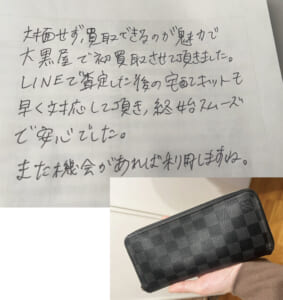 対面せず、買取できるのが魅力で
大黒屋で初買取させて頂きました。
LINEで査定した後の宅配キットも
早く対応して頂き、終始スムーズ
で安心でした。
また機会があれば利用しますね。